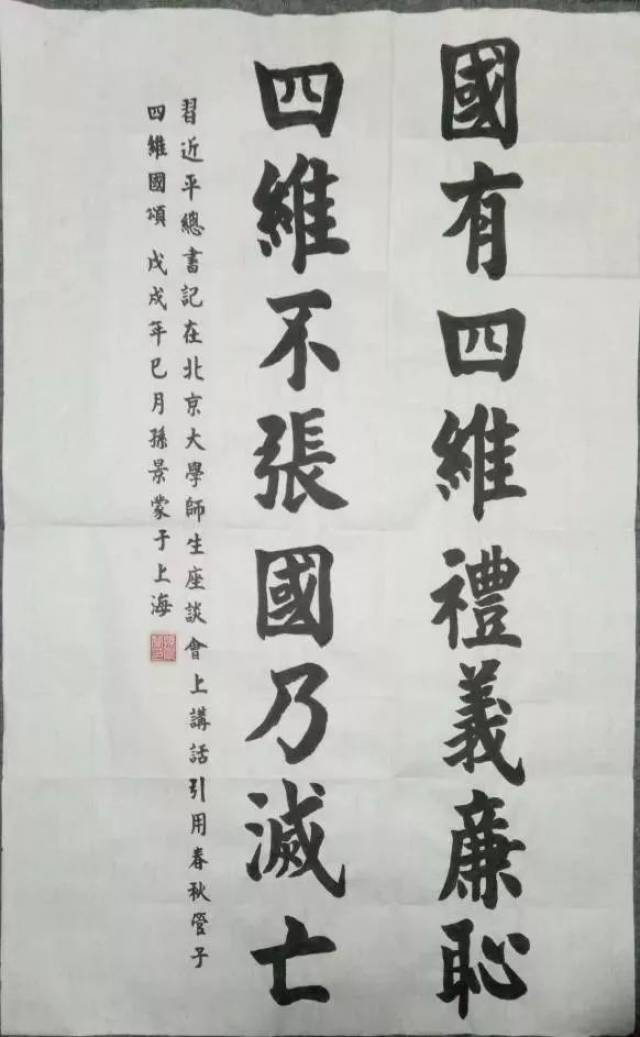 國有四維禮義廉恥
四維不張國乃滅亡
習近平總書記在北京大學師生座談會上講話引用春秋管子
四維國頌 戊戌年巳月孫景蒙于上海